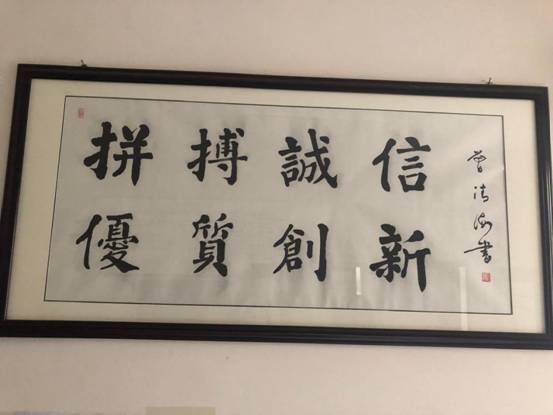 拼搏誠信
優質創新
曾清海書